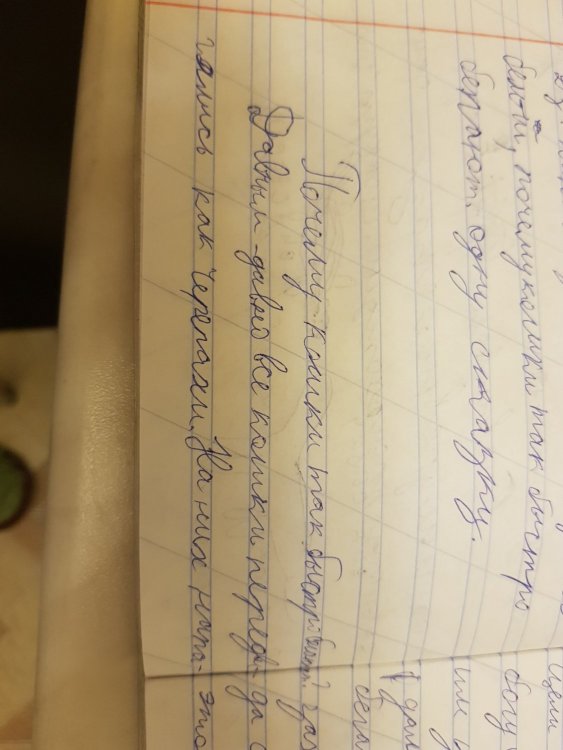 почему кошки так быстро
бегают одну сказку.
Почему кошки так быстро бегают?
Давным-давно все кошки передви-
гались как черепахи. На них напа-
бега
да с
это